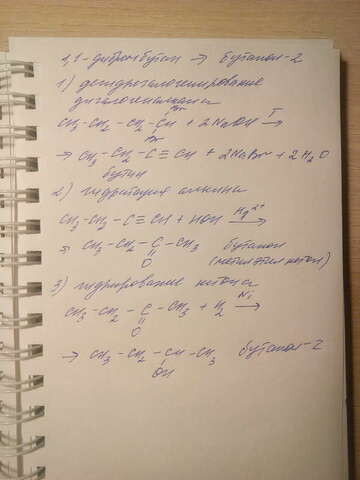 1,1-дибромбутан → Бутанол-2
1) дегидрогалогенирование
дигалогеналкана
Br
CH₃-CH₂-CH₂-CH + 2NaOH T→
Br
→ CH₃-CH₂-C≡CH + 2NaBr + 2H₂O
бутин
2) гидратация алкина
CH₃-CH₂-C≡CH + HOH Hg²⁺→
→ CH₃-CH₂-C-CH₃ бутанон
O (метилэтилкетон)
3) гидрирование кетона
CH₃-CH₂-C-CH₃ + H₂ Ni→
O
→ CH₃-CH₂-CH-CH₃ бутанол-2
OH